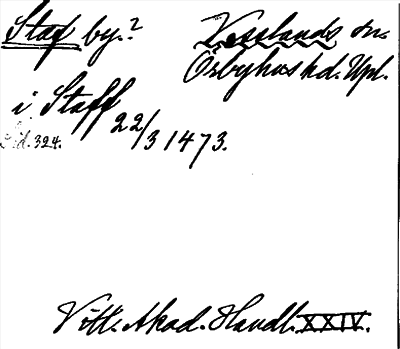 Staf by.? Vesslands sn.
Örbyhus hd. Upl.
i Staff 22/3 1473.
sid. 324.
Vitt. Akad. Handl. XXIV.